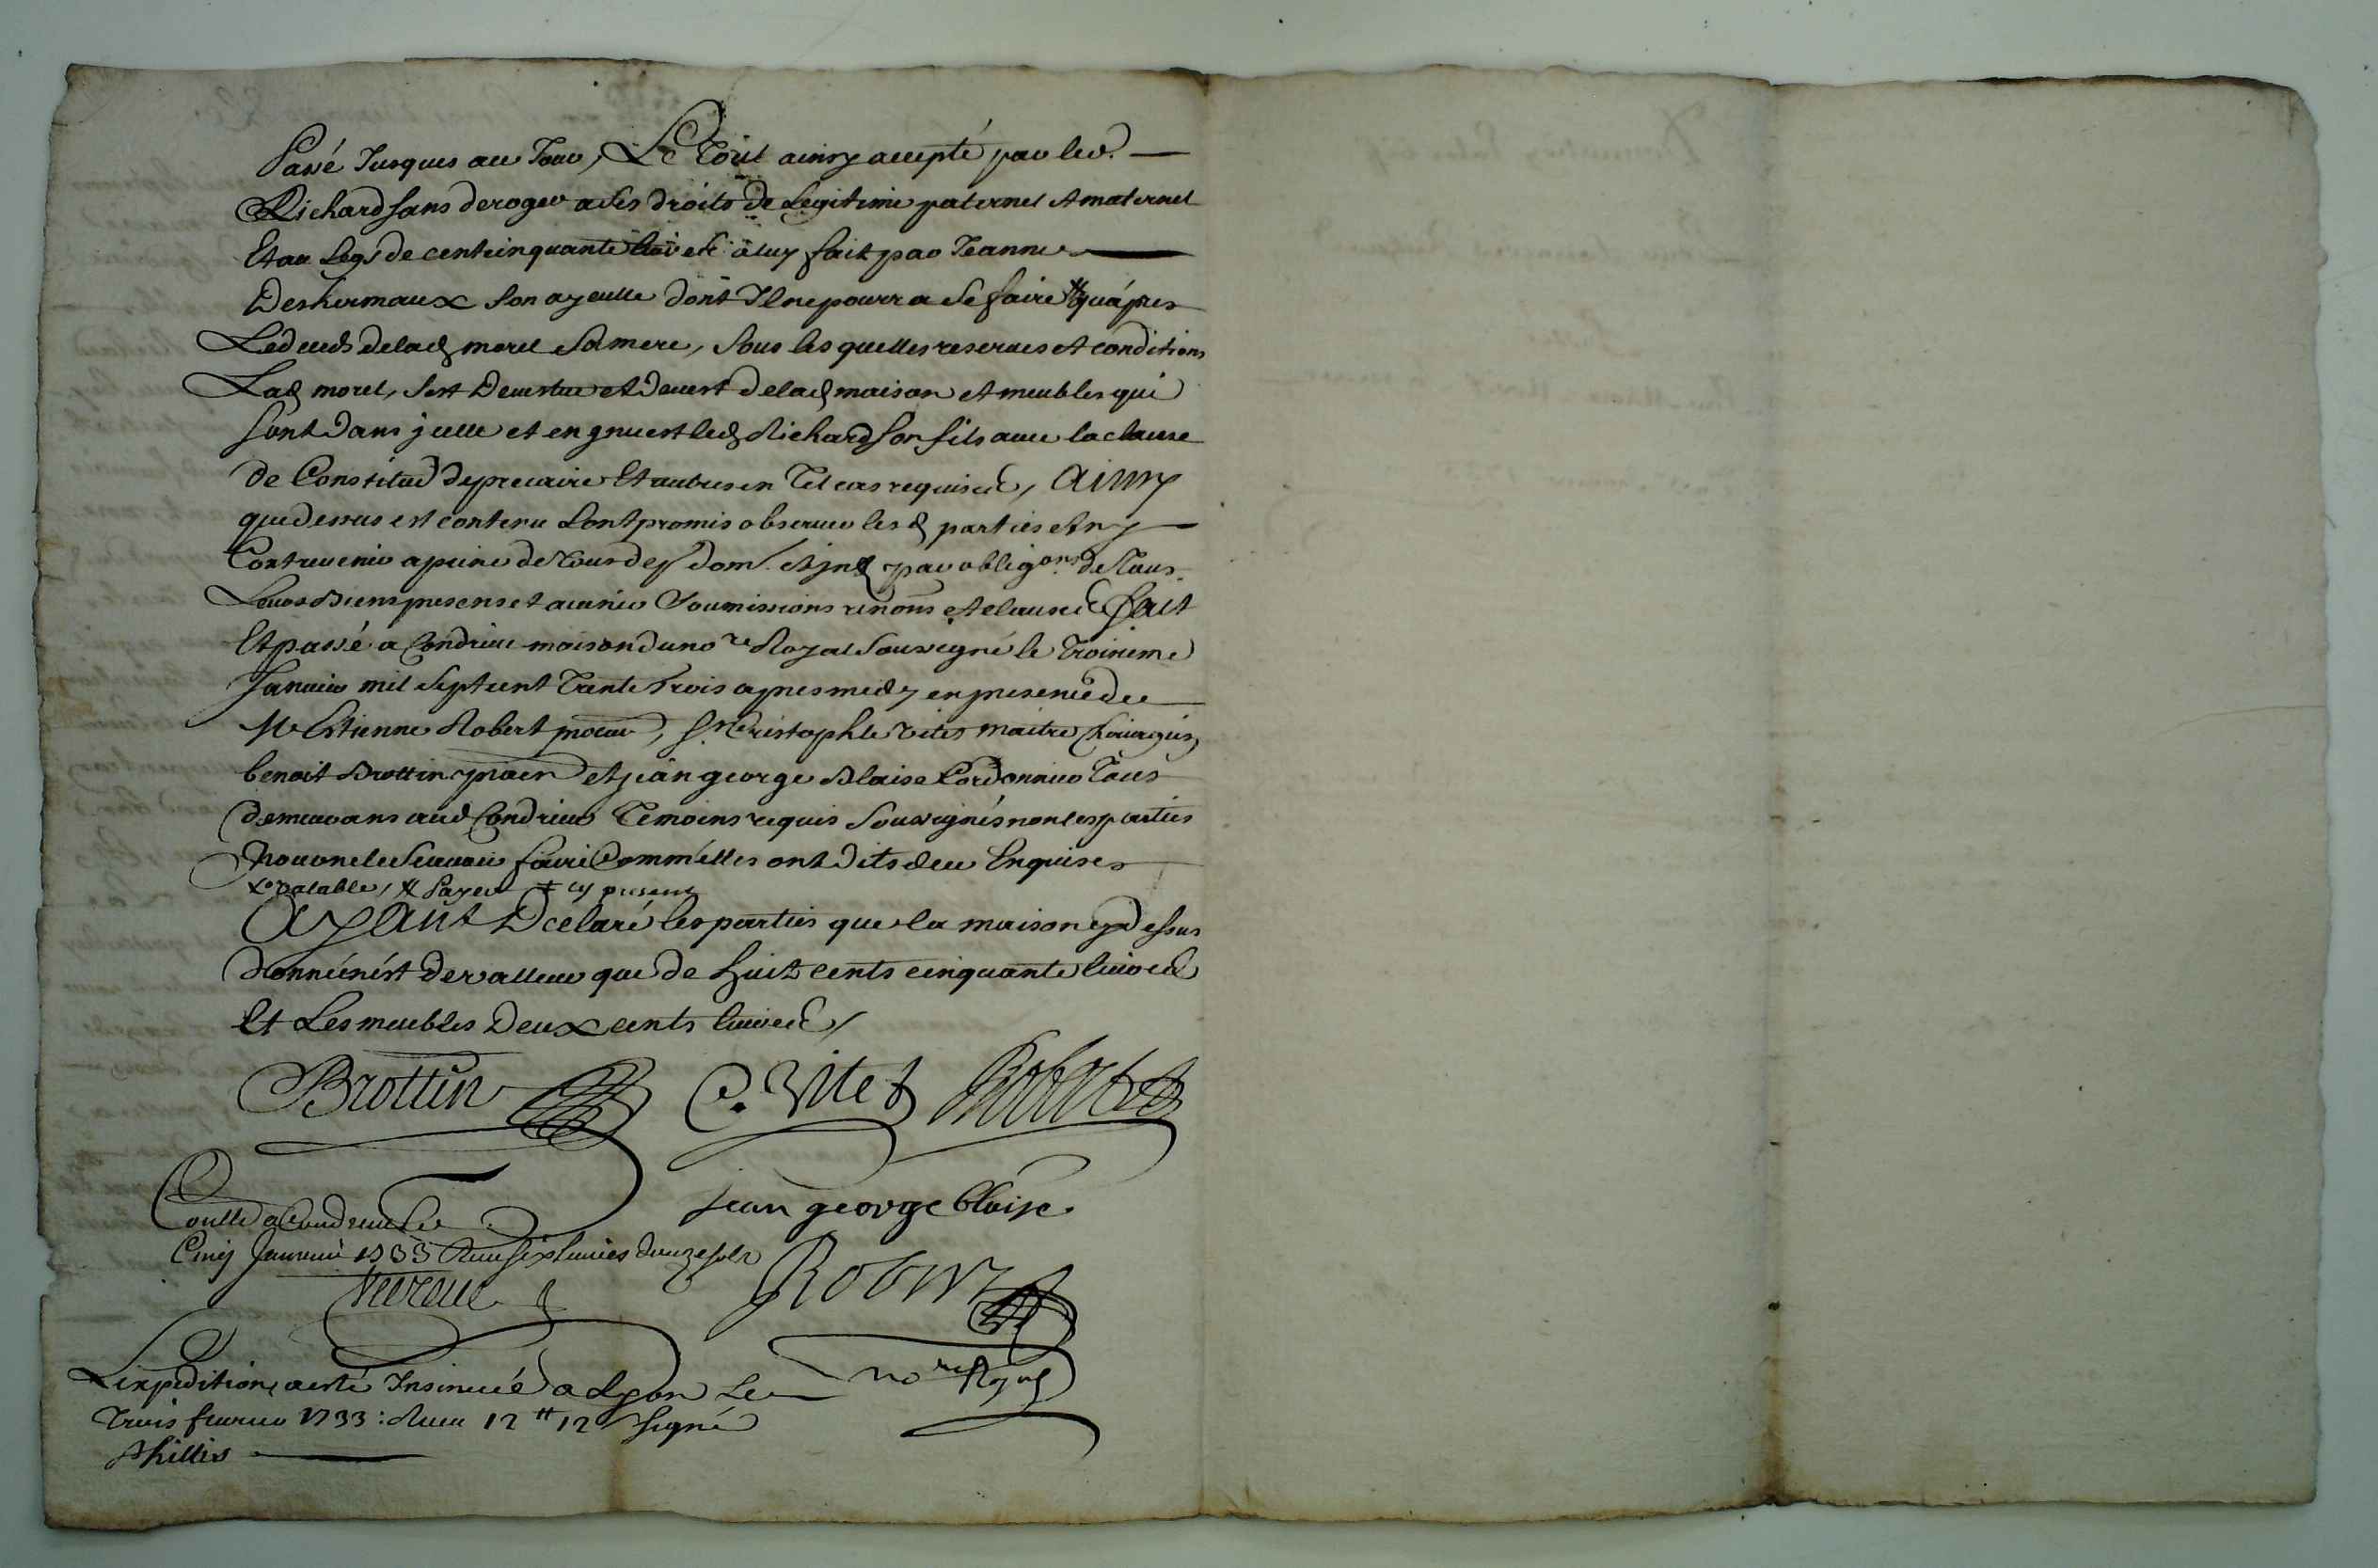 Passé Jusques au Jour, Le Tout ainsy accepté par led.
Richard sans deroger a ses droits de Legitime paternel et maternel
Et au Legs de cent cinquante livres a luy fait par Jeanne
Deshermaux son ayeulle dont Il ne pourra se faire # qu'apres
Le deceds de lad morel sa mere, sous les quelles reserves et conditions
Lad morel, s'est devestue et devest de lad maison et meubles qui
sont dans jcelle et en jnvest led Richard son fils avec la clause
de Constitud de precaire Et autres en Tel cas requises, ainsy
que dessus est contenu L'ont promis observer les d parties et n'y
Contrevenir a peine de Tous dep dom. et jn par obligons de Tous
Leurs Biens presens et avenir soumissions renons et clauses fait
Et passé a Condrieu maison du nore Royal soussigné le Troisieme
Janvier mil sept cent Trente Trois apres midy en presence de
Me Estienne Robert procur, sr Cristophle Vitet maitre chirurgien
benoit Brottin et jean george Blaise Cordonnier Tous
demeurans aud Condrieu Temoins requis soussignés non les parties
pour ne le scavoir faire Comm'elles ont dit de ce Enquises
valable, # payer + cy present
Ayant Declaré les parties que la maison cy dessus
donnée n'est de valleur que de huit cents cinquante livres
Et Les meubles Deux cents livres
Brottin C. Vitet Robert
jean george blaise
Conllé a Condrieu Le
Cinq Janvier 1733 Receu six livres douze sols
Robin
nore Royal
L'expedition a esté Insinuée a Lyon Le
Trois fevrier 1733: Receu 12 tt 12 s signé